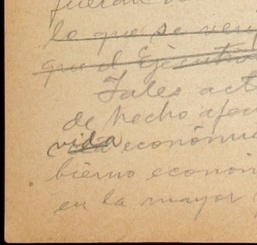 fueron
lo que se ven
que el Ejecutivo
Tales act
de hecho afec
vida económi
bierno econom
en la mayor